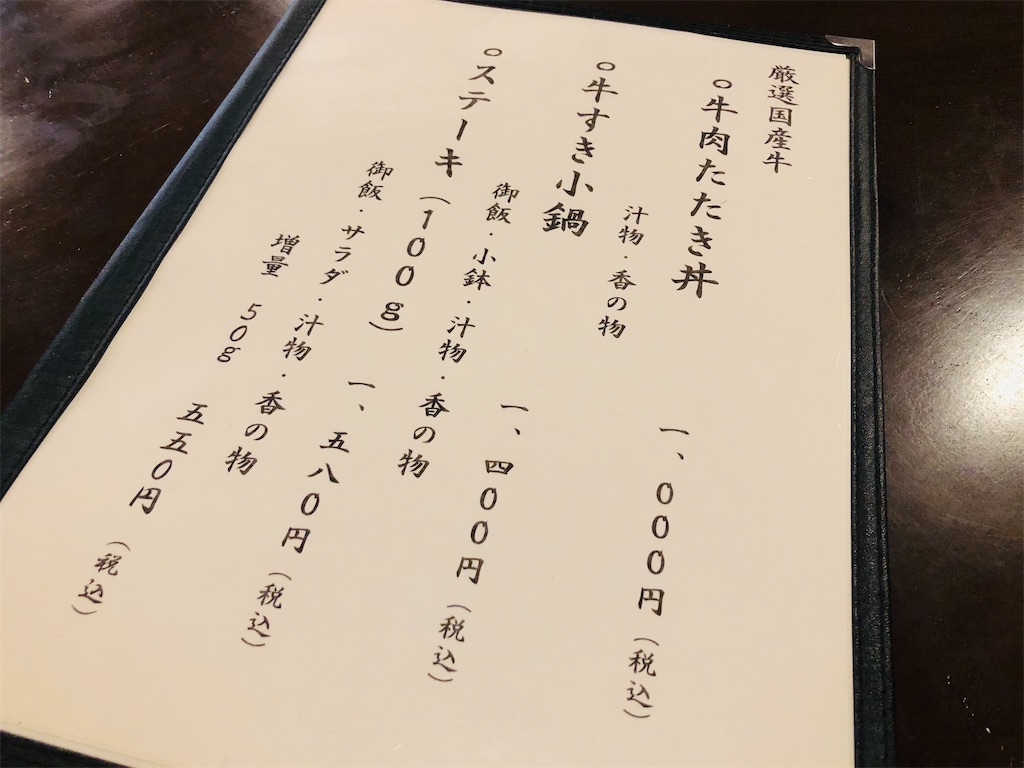 厳選国産牛
○牛肉たたき丼
汁物・香の物
一、000円（税込）
○牛すき小鍋
御飯・小鉢・汁物・香の物
一、四00円（税込）
○ステーキ（100g）
御飯・サラダ・汁物・香の物
一、五八0円（税込）
増量 50g 五五0円（税込）